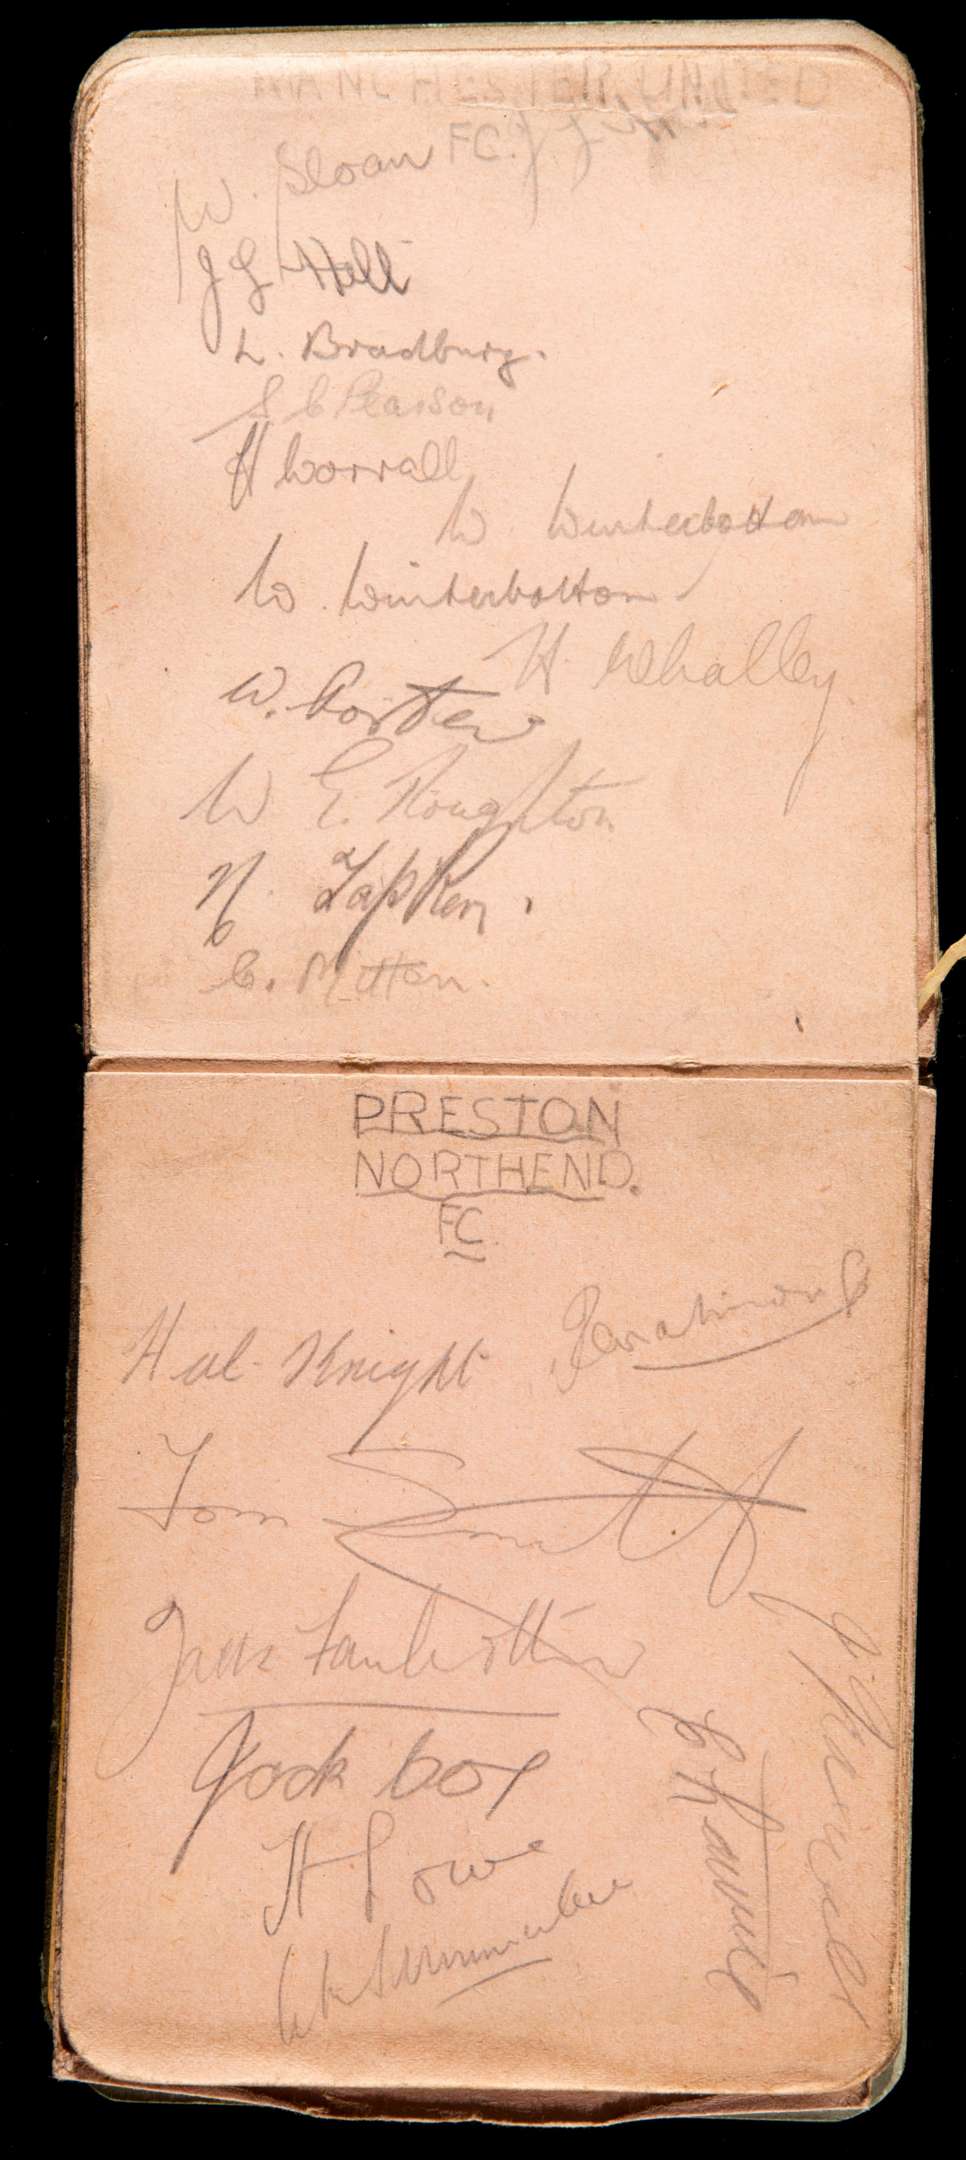 MANCHESTER UNITED
FC.
W. Sloan
J G Hall
L. Bradbury.
S C Pearson
H Worrall
W. Winterbottom
W. Winterbottom
H. Whalley
W. Porter
W E. Roughton
N. Tapken.
C. Mitten.
PRESTON
NORTHEND.
FC
Hal. Knight
Tom Smith
Jack
Jock Cox
H Lowe